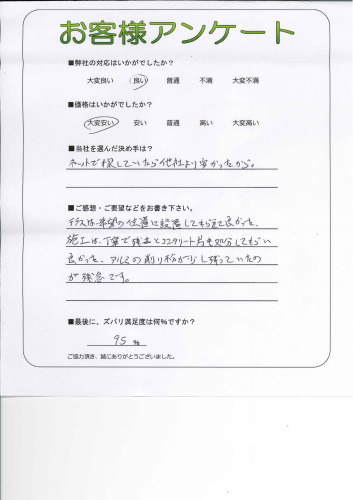 お客様アンケート
■弊社の対応はいかがでしたか？
大変良い 良い 普通 不満 大変不満
■価格はいかがでしたか？
大変安い 安い 普通 高い 大変高い
■当社を選んだ決め手は？
ネットで探していたら他社より安かったから。
■ご感想・ご要望などをお書き下さい。
テラスは、希望の位置に設置してもらえて良かった。
施工は、丁寧で残土とコンクリート片も処分してもらい
良かった。アルミの削り粉が少し残っていたの
が残念です。
■最後に、ズバリ満足度は何％ですか？
95 %
ご協力頂き、誠にありがとうございました。